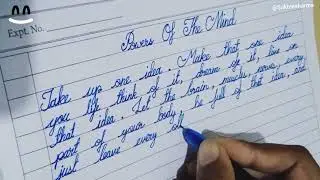 @Sukhteesharma
Expt. No.
Powers Of The Mind
Take up one idea. Make that one idea
you life think of it, dream of it, live on
that idea. Let the brain, muscles, nerves, every
part of your body, be full of that idea, and
just leave every